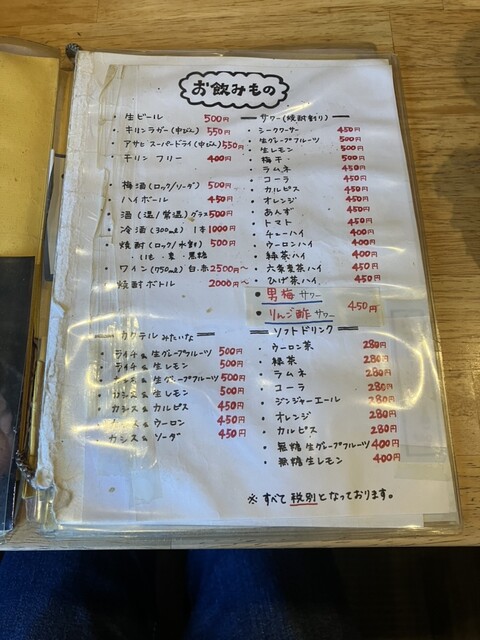 お飲みもの
・生ビール 500円
・キリンラガー(中びん) 550円
・アサヒ スーパードライ(中びん) 550円
・キリン フリー 400円
・梅酒(ロック/ソーダ) 500円
・ハイボール 450円
・酒(温/常温)グラス 500円
・冷酒(300ml) 1本 1000円
・焼酎(ロック/水割) 500円
・いも ・麦 ・黒糖
・ワイン(750ml) 白・赤 2500円〜
・焼酎ボトル 2000円〜
カクテル みたいな
・ライチ & 生グレープフルーツ 500円
・ライチ & 生レモン 500円
& 生グレープフルーツ 500円
・カシス & 生レモン 500円
・カシス & カルピス 450円
& ウーロン 450円
・カシス & ソーダ 450円
サワー(焼酎割り)
・シークワーサー 450円
・生グレープフルーツ 500円
・生レモン 500円
・梅干 500円
・ラムネ 450円
・コーラ 450円
・カルピス 450円
・オレンジ 450円
・あんず 450円
・トマト 450円
・チューハイ 400円
・ウーロンハイ 400円
・緑茶ハイ 400円
・六条麦茶ハイ 450円
・ひげ茶ハイ 450円
・男梅サワー
・りんご酢サワー 450円
ソフトドリンク
・ウーロン茶 280円
・緑茶 280円
・ラムネ 280円
・コーラ 280円
・ジンジャーエール 280円
・オレンジ 280円
・カルピス 280円
・無糖生グレープフルーツ 400円
・無糖生レモン 400円
※すべて税別となっております。